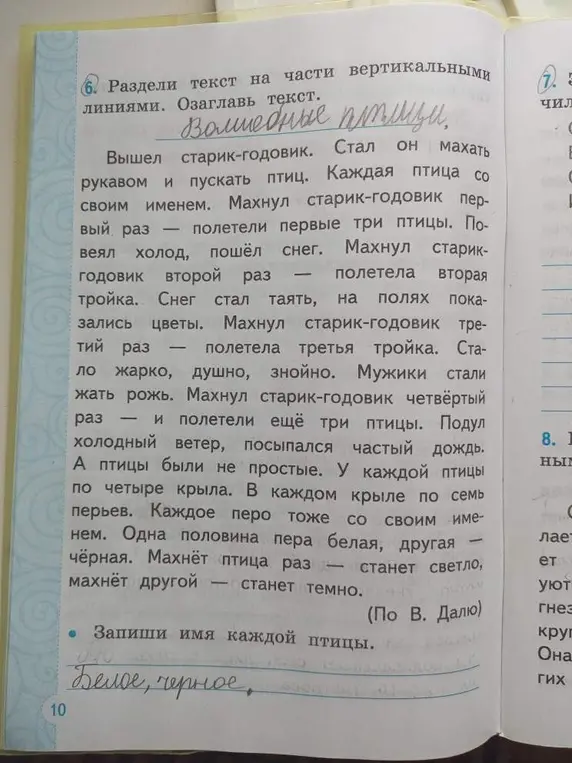 6. Раздели текст на части вертикальными
линиями. Озаглавь текст.
Волшебные птици.
Вышел старик-годовик. Стал он махать
рукавом и пускать птиц. Каждая птица со
своим именем. Махнул старик-годовик пер-
вый раз — полетели первые три птицы. По-
веял холод, пошёл снег. Махнул старик-
годовик второй раз — полетела вторая
тройка. Снег стал таять, на полях пока-
зались цветы. Махнул старик-годовик тре-
тий раз — полетела третья тройка. Ста-
ло жарко, душно, знойно. Мужики стали
жать рожь. Махнул старик-годовик четвёртый
раз — и полетели ещё три птицы. Подул
холодный ветер, посыпался частый дождь.
А птицы были не простые. У каждой птицы
по четыре крыла. В каждом крыле по семь
перьев. Каждое перо тоже со своим име-
нем. Одна половина пера белая, другая —
чёрная. Махнёт птица раз — станет светло,
махнёт другой — станет темно.
(По В. Далю)
• Запиши имя каждой птицы.
Белое, черное.
10
7.
чил
8.
ным
лает
ет
уют
гнез
круг
Она
гих